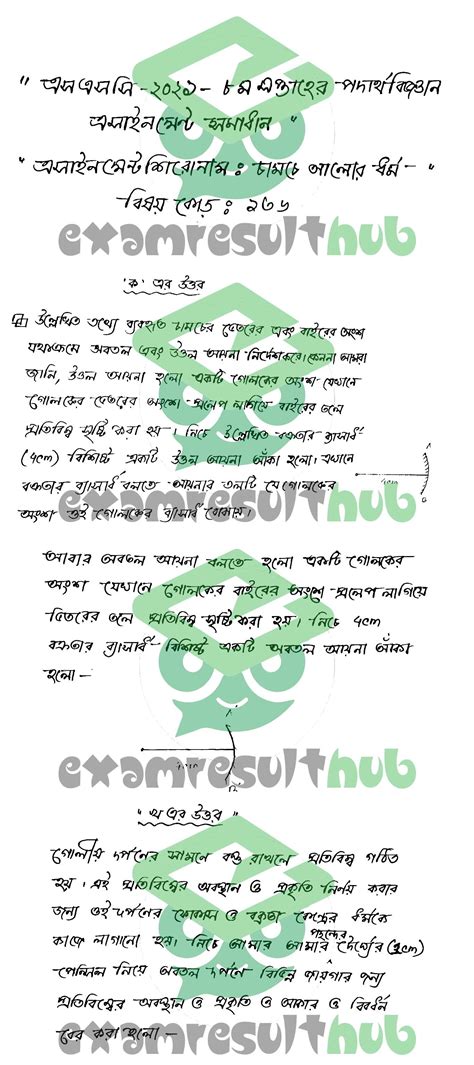 " এসএসসি-২০২১- ৮ম সপ্তাহের পদার্থবিজ্ঞান
এসাইনমেন্ট সমাধান "
" এসাইনমেন্ট শিরোনাম : চামচে আলোর ধর্ম - "
বিষয় কোড : ১৩৬
examresulthub
'ক' এর উত্তর
উল্লেখিত তথ্যে ব্যবহৃত চামচের ভেতরের এবং বাইরের অংশ
যথাক্রমে অবতল এবং উত্তল আয়না নির্দেশ করে। কেননা আমরা
জানি, উত্তল আয়না হলো একটি গোলকের অংশ যেখানে
গোলকের ভেতরের অংশে প্রলেপ লাগিয়ে বাইরের তলে
প্রতিবিম্ব সৃষ্টি করা হয়। নিচে উল্লেখিত বক্রতার ব্যাসার্ধ
(4cm) বিশিষ্ট একটি উত্তল আয়না আঁকা হলো। এখানে
বক্রতার ব্যাসার্ধ বলতে আয়নার তলটি যে গোলকের
অংশ ওই গোলকের ব্যাসার্ধ বোঝায়।
4cm
examresulthub
আবার অবতল আয়না বলতে হলো একটি গোলকের
অংশ যেখানে গোলকের বাইরের অংশে প্রলেপ লাগিয়ে
ভিতরের তলে প্রতিবিম্ব সৃষ্টি করা হয়। নিচে 4cm
বক্রতার ব্যাসার্ধ বিশিষ্ট একটি অবতল আয়না আঁকা
হলো -
examresulthub
" খ এর উত্তর "
গোলীয় দর্পনের সামনে বস্তু রাখলে প্রতিবিম্ব গঠিত
হয়। এই প্রতিবিম্বের অবস্থান ও প্রকৃতি নির্ণয় করার
জন্য ওই দর্পনের ফোকাস ও বক্রতা কেন্দ্রের ধর্মকে
কাজে লাগানো হয়। নিচে আমার আমার পছন্দের দৈর্ঘ্যের (2cm)
পেন্সিল নিয়ে অবতল দর্পনে বিভিন্ন জায়গার জন্য
প্রতিবিম্বের অবস্থান ও প্রকৃতি ও আকার ও বিবর্ধন
বের করা হলো -
examresulthub